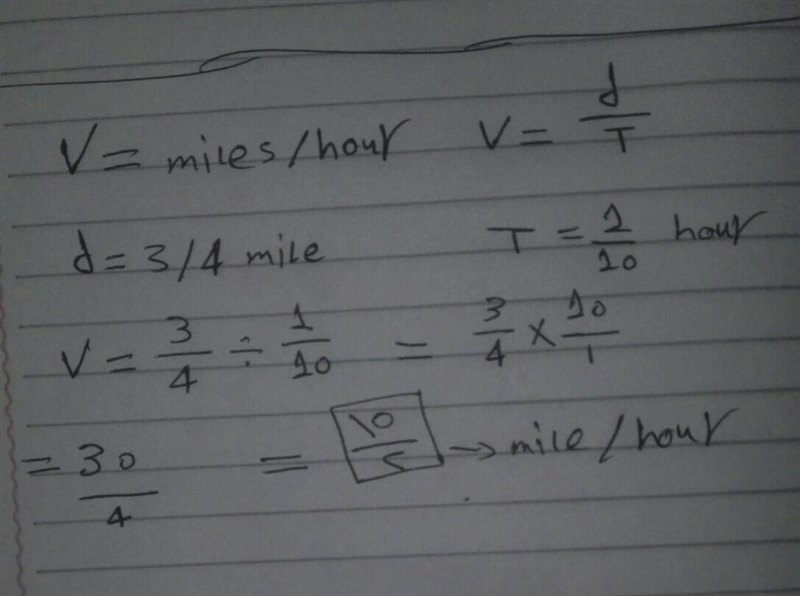 V = miles/hour V = d/T
d = 3/4 mile T = 1/10 hour
V = 3/4 ÷ 1/10 = 3/4 × 10/1
= 30/4 = 10/5 → mile/hour